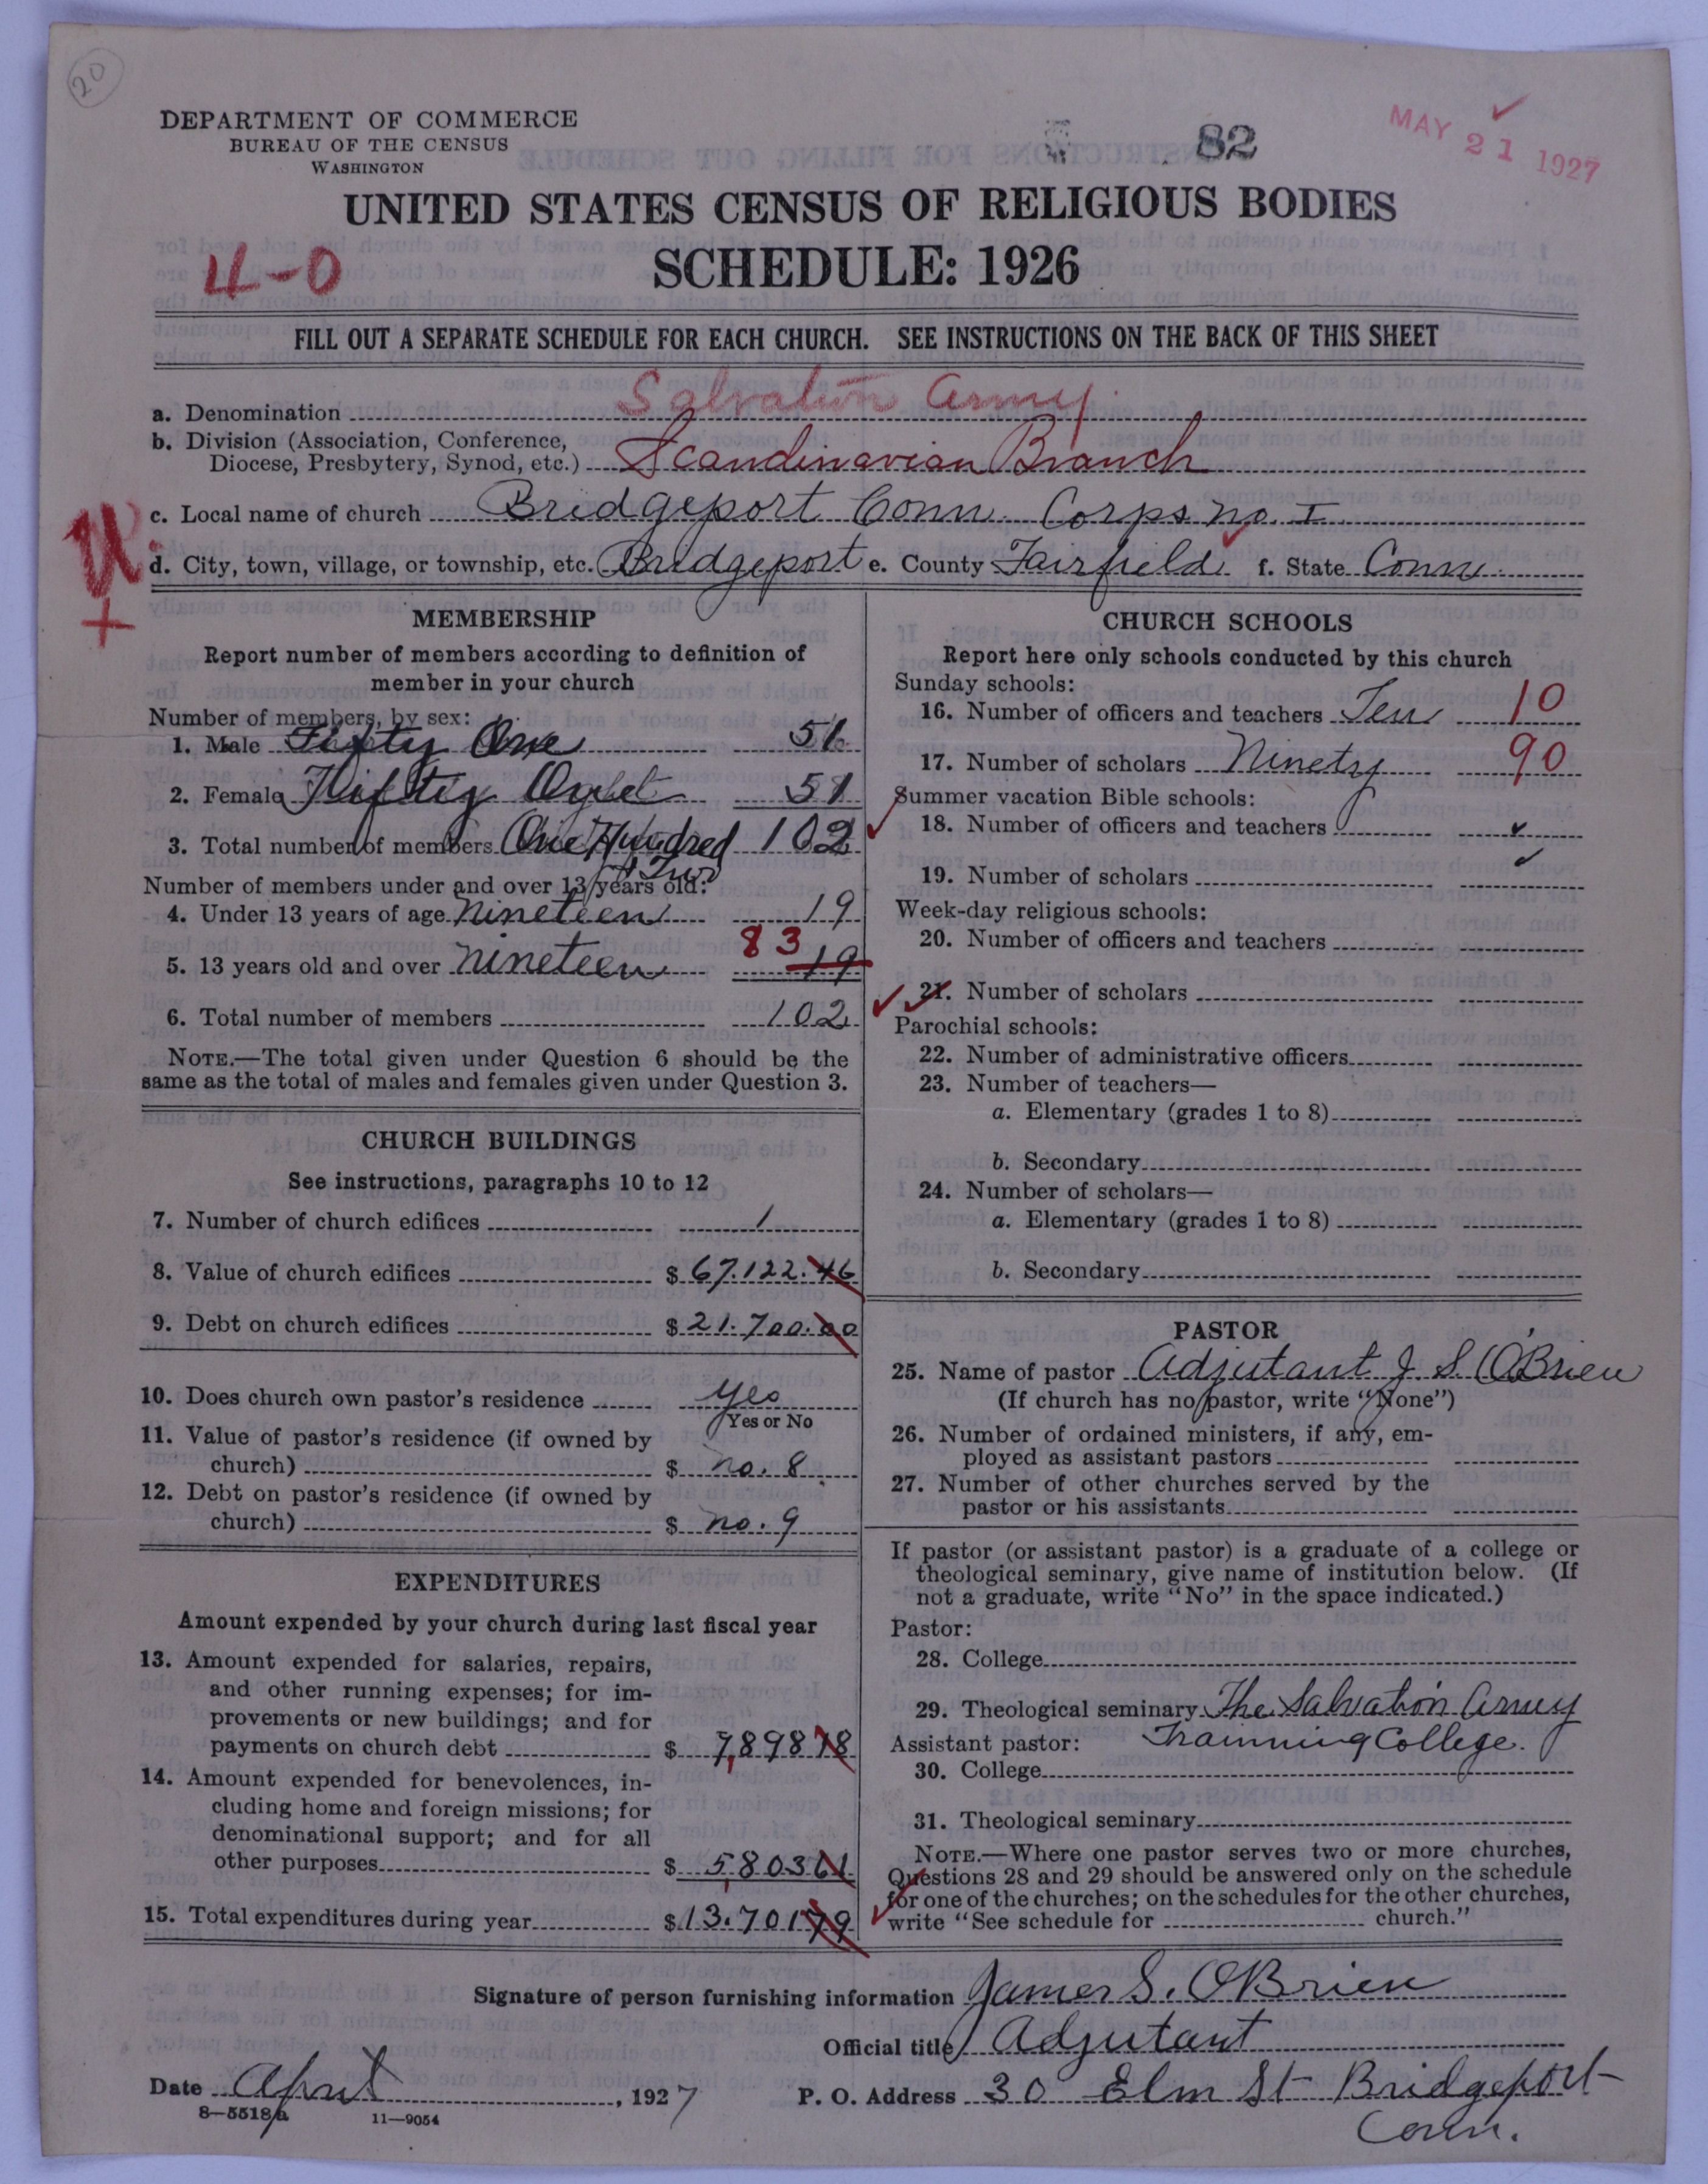 20
DEPARTMENT OF COMMERCE
BUREAU OF THE CENSUS
WASHINGTON
82
MAY 21 1927
UNITED STATES CENSUS OF RELIGIOUS BODIES
SCHEDULE: 1926
4-0
FILL OUT A SEPARATE SCHEDULE FOR EACH CHURCH. SEE INSTRUCTIONS ON THE BACK OF THIS SHEET
a. Denomination Salvation Army
b. Division (Association, Conference,
Diocese, Presbytery, Synod, etc.) Scandinavian Branch
c. Local name of church Bridgeport Conn. Corps no. I
d. City, town, village, or township, etc. Bridgeport e. County Fairfield f. State Conn.
MEMBERSHIP
Report number of members according to definition of
member in your church
Number of members, by sex:
1. Male Fifty One 51
2. Female 51
3. Total number of members One Hundred 102
+ Two
Number of members under and over 13 years old:
4. Under 13 years of age Nineteen 19
83
5. 13 years old and over Nineteen 19
6. Total number of members 102
NOTE.—The total given under Question 6 should be the
same as the total of males and females given under Question 3.
CHURCH BUILDINGS
See instructions, paragraphs 10 to 12
7. Number of church edifices 1
8. Value of church edifices $ 67.122.46
9. Debt on church edifices $ 21.700.00
10. Does church own pastor's residence yes
Yes or No
11. Value of pastor's residence (if owned by
church) $ no. 8
12. Debt on pastor's residence (if owned by
church) $ no. 9
EXPENDITURES
Amount expended by your church during last fiscal year
13. Amount expended for salaries, repairs,
and other running expenses; for im-
provements or new buildings; and for
payments on church debt $ 7,89818
14. Amount expended for benevolences, in-
cluding home and foreign missions; for
denominational support; and for all
other purposes $ 5,80361
15. Total expenditures during year $ 13.70179
CHURCH SCHOOLS
Report here only schools conducted by this church
Sunday schools:
16. Number of officers and teachers Ten 10
17. Number of scholars Ninety 90
Summer vacation Bible schools:
18. Number of officers and teachers
19. Number of scholars
Week-day religious schools:
20. Number of officers and teachers
21. Number of scholars
Parochial schools:
22. Number of administrative officers
23. Number of teachers—
a. Elementary (grades 1 to 8)
b. Secondary
24. Number of scholars—
a. Elementary (grades 1 to 8)
b. Secondary
PASTOR
25. Name of pastor Adjutant J S O'Brien
(If church has no pastor, write "None")
26. Number of ordained ministers, if any, em-
ployed as assistant pastors
27. Number of other churches served by the
pastor or his assistants
If pastor (or assistant pastor) is a graduate of a college or
theological seminary, give name of institution below. (If
not a graduate, write "No" in the space indicated.)
Pastor:
28. College
29. Theological seminary The Salvation Army
Assistant pastor: Trainning College.
30. College
31. Theological seminary
NOTE.—Where one pastor serves two or more churches,
Questions 28 and 29 should be answered only on the schedule
for one of the churches; on the schedules for the other churches,
write "See schedule for church."
Signature of person furnishing information James S. O'Brien
Official title Adjutant
Date April, 1927 P. O. Address 30 Elm St Bridgeport
Conn.
8—5518a 11—9054